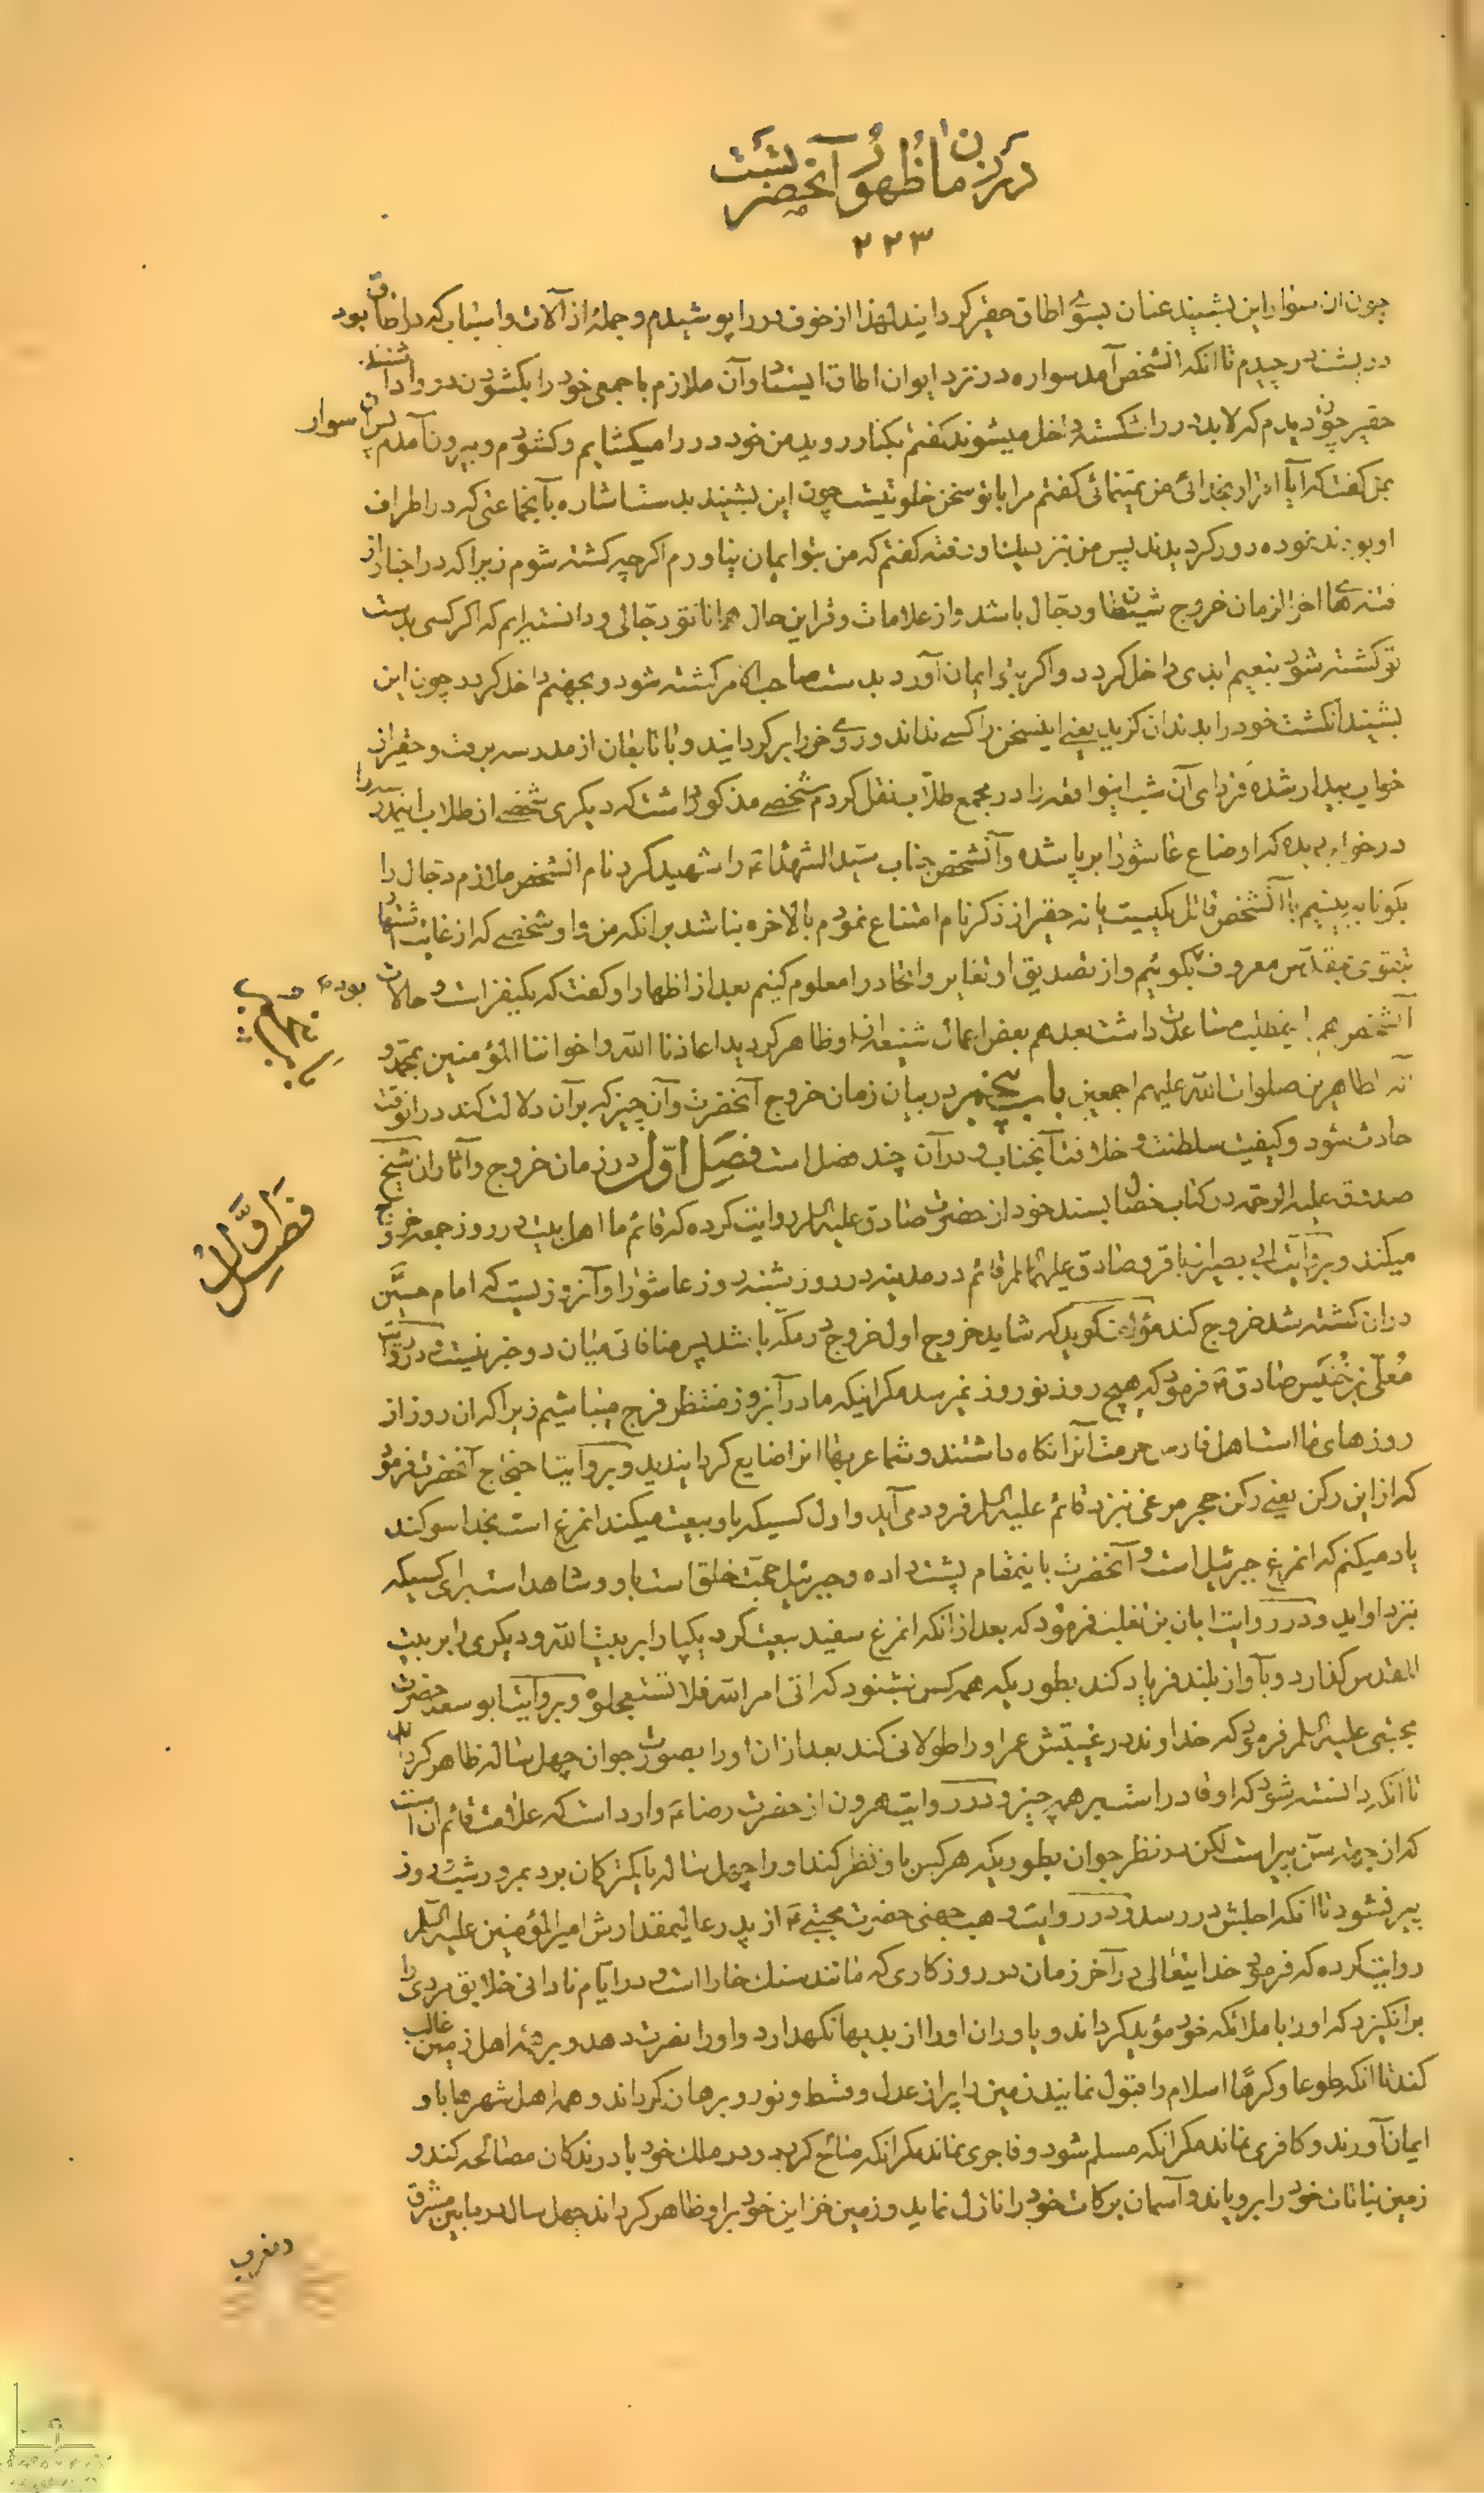 در زمان ظهور آنحضرتست
٢٢٣
چون ان سوار این بشنید عنان بسوی اطاق حقیر کردانید لهذا از خوف در را پوشیدم و جملهٔ از آلات و اسباب که در اطاق بود
در پشت در چیدم تا انکه انشخص آمد سواره در نزد ایوان اطاق ایستاد و آن ملازم با جمعی خود را بکشودن در وا داشتند
حقیر چون دیدم که لابد در را شکسته داخل میشوند کفتم بکنار روید من خود در را میکشایم و کشودم و بیرون آمدم پس ان سوار
بمن کفت که آیا اقرار بخدائی من نمینمائی کفتم مرا با تو سخن خلوتیست چون این بشنید بدست اشاره بآنجماعتی که در اطراف
او بودند نموده دور کردیدند پس من نزدیک او رفته کفتم که من بتو ایمان نیاورم اکر چه کشته شوم زیرا که در اخبار از
فتنه‌های اخرالزمان خروج شیطان و دجال باشد و از علامات و قراین حال همانا تو دجالی و دانسته‌ایم که اکر کسی بدست
تو کشته شود بنعیم ابدی داخل کردد و اکر بتو ایمان آورد بدست صاحب الامر کشته شود و بجهنم داخل کردد چون این
بشنید انکشت خود را بدندان کزید یعنی اینسخن را کسی نداند و روی خود را برکردانید و با تابعان از مدرسه برفت و حقیر از
خواب بیدار شده فردای آن شب اینواقعه را در مجمع طلاب نقل کردم شخصی مذکور داشت که دیکری شخصی از طلاب اینمدرسه را
در خواب دیده که اوضاع عاشورا برپا شده و آنشخص جناب سید الشهداء ع را شهید کرد نام انشخص ملازم دجال را
بکو تا به بینیم با آنشخص قاتل یکیست یا نه حقیر از ذکر نام امتناع نمودم بالاخره بنا شد برانکه من و او شخصی که از غایت اشتهار
بتقوی بمقدس معروف بکوئیم و از تصدیق او تغایر و اتحاد را معلوم کنیم بعد از اظهار او کفت که یکنفر است و حالات
آنشخص هم باینمطلب مساعدت داشت بعد هم بعض اعمال شنیعه از او ظاهر کردید اعاذنا الله و اخواننا المؤمنین بمحمد و
آله الطاهرین صلوات الله علیهم اجمعین باب پنجم در بیان زمان خروج آنحضرت و آن چیز که بر آن دلالت کند در انوقت
حادث شود و کیفیت سلطنت و خلافت آنجناب و در آن چند فصل است فصل اول در زمان خروج و آثار ان شیخ
صدوق علیه الرحمه در کتاب خصال بسند خود از حضرت صادق علیه السلام روایت کرده که قائم ما اهل بیت در روز جمعه خروج
میکند و بروایت ابی بصیر از باقر و صادق علیهما السلام قائم در مدینه در روز شنبه روز عاشورا و آنروزیست که امام حسین
دران کشته شد خروج کند مؤلف کوید که شاید خروج اول خروج در مکه باشد پس منافاتی میان دو خبر نیست و در روایت
معلی بن خنیس صادق ع فرمود که هیچ روز نوروز نمیرسد مکر اینکه ما در آنروز منتظر فرج میباشیم زیرا که ان روز از
روزهای ما است اهل فارس حرمت آنرا نکاه داشتند و شما عربها انرا ضایع کردانیدید و بروایت احتجاج آنحضرت فرمود
که از این رکن یعنی رکن حجر مرغی نزد قائم علیه السلام فرود می‌آید و اول کسیکه باو بیعت میکند انمرغ است بخدا سوکند
یاد میکنم که انمرغ جبرئیل است و آنحضرت باینمقام پشت داده و جبرئیل حجت خلق است باو و شاهد است برای کسیکه
نزد او اید و در روایت ابان بن تغلب فرمود که بعد از انکه انمرغ سفید بیعت کرد یکپا را بر بیت الله و دیکری را بر بیت
المقدس کذارد و بآواز بلند فریاد کند بطوریکه همه کس بشنود که اتی امر الله فلا تستعجلوه و بروایت ابو سعید حضرت
مجتبی علیه السلام فرمود که خداوند در غیبتش عمر او را طولانی کند بعد از ان او را بصورت جوان چهل ساله ظاهر کرداند
تا انکه دانسته شود که او قادر است بر همه چیز و در روایت هرون از حضرت رضا ع وارد است که علامت قائم ان است
که از جهت سن پیر است لکن در نظر جوان بطوریکه هر کس باو نظر کند او را چهل ساله یا کمتر کمان برد بمرور شب و روز
پیر نشود تا انکه اجلش در رسد و در روایت وهب جهنی حضرت مجتبی ع از پدر عالیمقدارش امیر المؤمنین علیه السلام
روایت کرده که فرمود خدایتعالی در آخر زمان در روزکاری که مانند سنک خارا است و در ایام نادانی خلایق مردی را
برانکیزد که او را با ملائکه خود مؤید کرداند و یاوران او را از بدیها نکهدارد و او را نصرت دهد و بر همه اهل زمین غالب
کند تا انکه طوعا و کرها اسلام را قبول نمایند زمین را پر از عدل و قسط و نور و برهان کرداند و همه اهل شهرها باو
ایمان آورند و کافری نماند مکر انکه مسلم شود و فاجری نماند مکر انکه صالح کردد و در ملک خود با درندکان مصالحه کند و
زمین نباتات خود را برویاند و آسمان برکات خود را نازل نماید و زمین خزاین خود بر او ظاهر کرداند چهل سال در مابین مشرق
و مغرب
باب پنجم
فصل اول